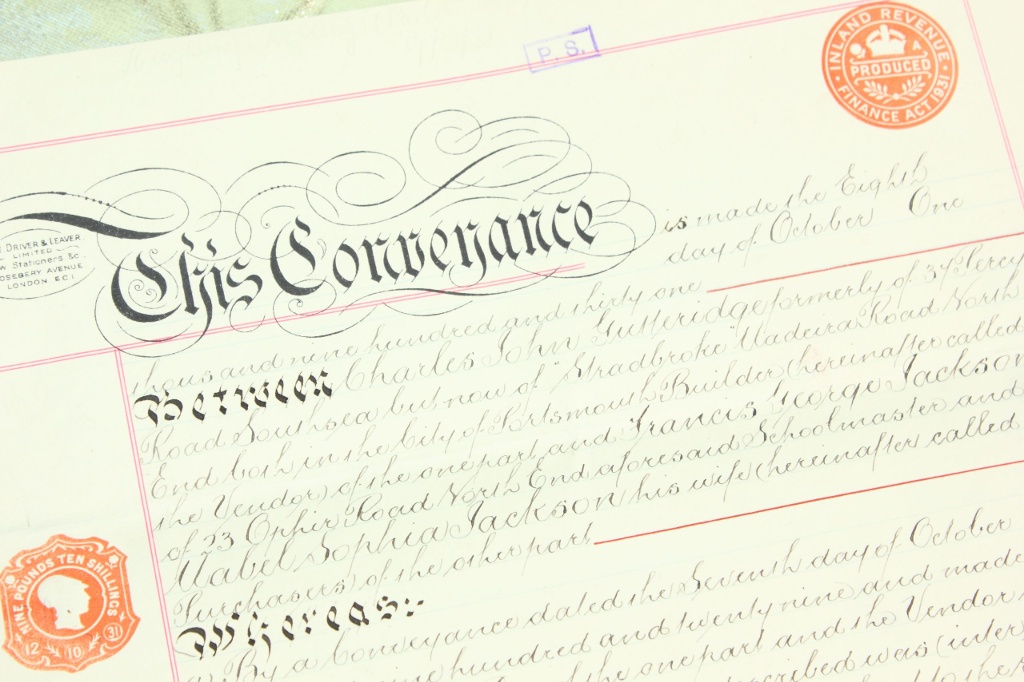 P. S.
INLAND REVENUE
A
PRODUCED
FINANCE ACT 1931
DRIVER & LEAVER
LIMITED
Stationers &c.
ROSEBERY AVENUE
LONDON E.C.1
This Conveyance
is made the Eighth
day of October One
thousand nine hundred and thirty one
Between Charles John Gutteridge formerly of 37 Percy
Road Southsea but now of "Stradbroke" Madeira Road North
End both in the City of Portsmouth Builder (hereinafter called
the Vendor) of the one part and Francis George Jackson
of 33 Ophir Road North End aforesaid Schoolmaster and
Mabel Sophia Jackson his wife (hereinafter called
Purchasers) of the other part
Whereas:-
By a Conveyance dated the Seventh day of October
nine hundred and twenty nine and made
of the one part and the Vendor
described was (inter
to the
NINE POUNDS TEN SHILLINGS
12 10 31